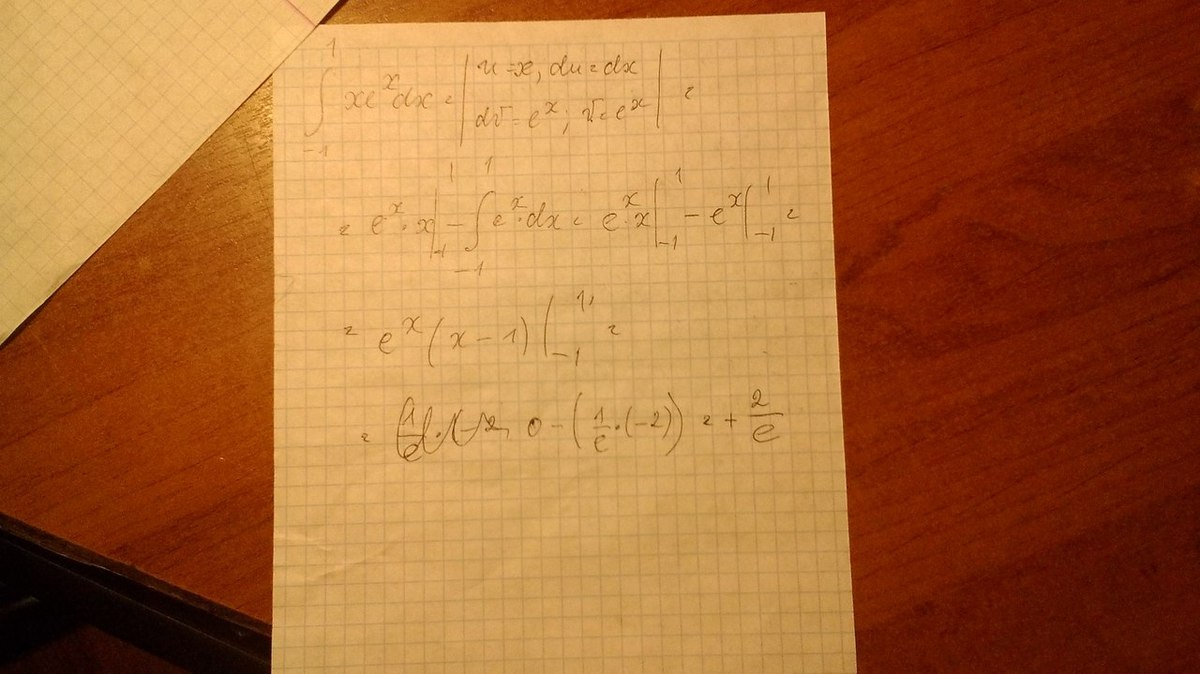 ∫_{-1}^{1} xe^x dx = | u=x, du=dx
dv=e^x; v=e^x | =
= e^x·x|_{-1}^{1} - ∫_{-1}^{1} e^x·dx = e^x·x|_{-1}^{1} - e^x|_{-1}^{1} =
= e^x(x-1)|_{-1}^{1} =
= 0-(1/e·(-2)) = +2/e